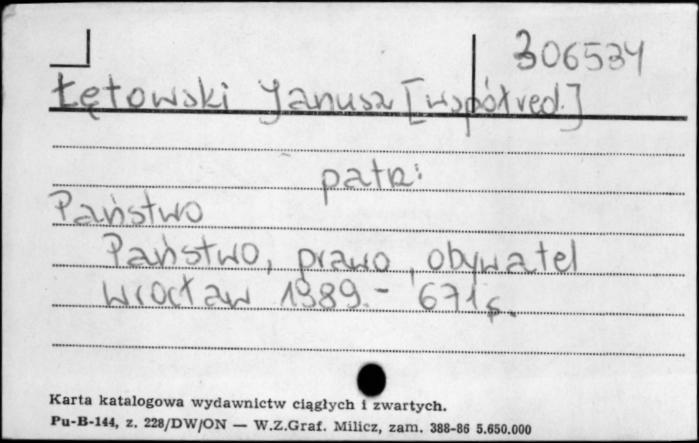 306534
Łętowski Janusz [współred.]
patrz:
Państwo
Państwo, prawo, obywatel
Wrocław 1989.- 671 s.
Karta katalogowa wydawnictw ciągłych i zwartych.
Pu-B-144, z. 228/DW/ON — W.Z.Graf. Milicz, zam. 388-86 5.650.000